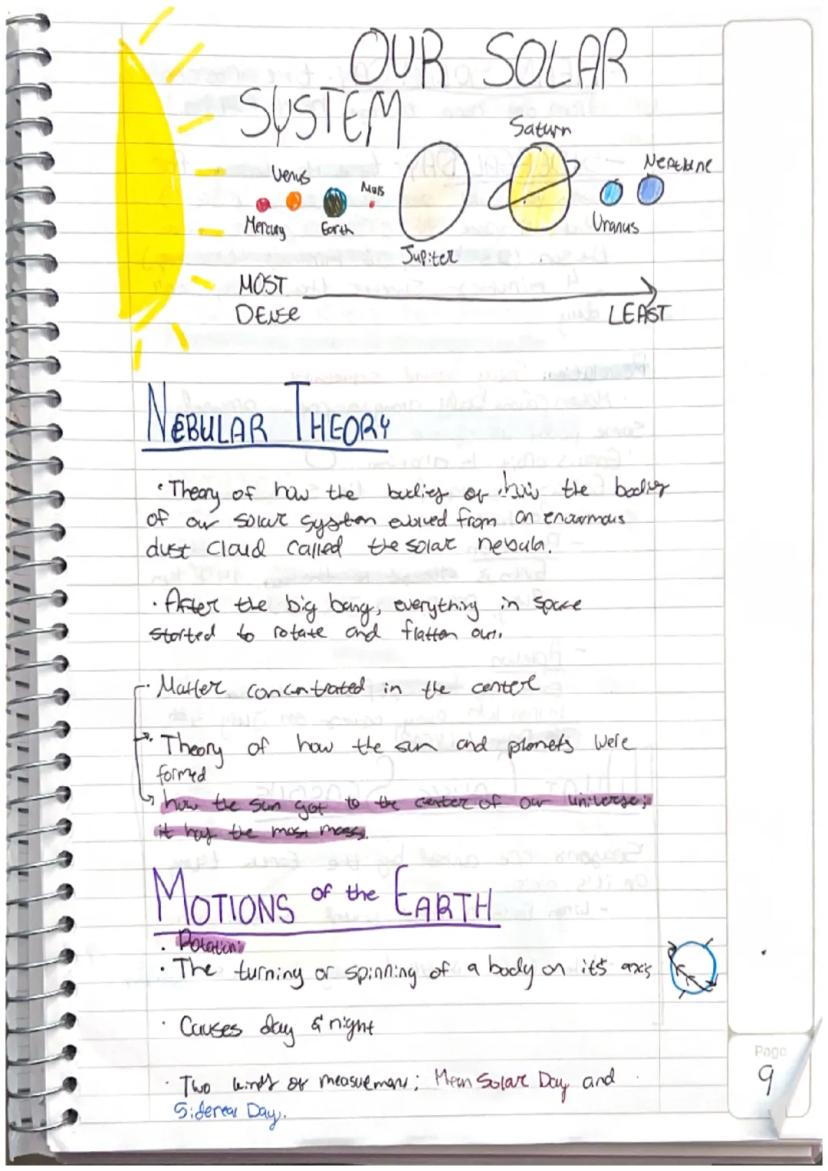 OUR SOLAR
SYSTEM
Saturn
Venus
Mars
Neptune
Mercury
Earth
Uranus
Jupiter
MOST
DENSE
LEAST
NEBULAR THEORY
• Theory of how the bodies of how the bodies
of our solar system evolved from an enourmous
dust cloud called the solar nebula.
• After the big bang, everything in space
started to rotate and flatten out.
• Matter concentrated in the center
• Theory of how the sun and planets were
formed
how the sun got to the center of our universe;
it has the most mass.
MOTIONS of the EARTH
• Rotation
• The turning or spinning of a body on its axis
• Causes day & night
• Two kinds of measurement; Mean Solar Day and
Sidereal Day.
Page
9